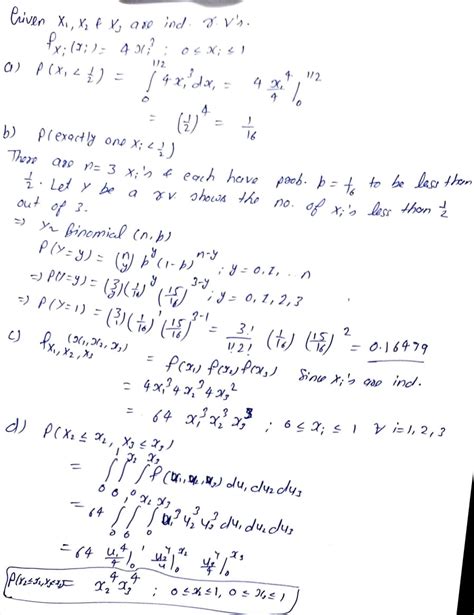 Given X1, X2 & X3 are ind. r V's.
fXi(xi) = 4xi³ ; 0 ≤ xi ≤ 1
a) P(X1 < 1/2) = ∫₀^{1/2} 4x1³ dx1 = 4 x1⁴/4 |₀^{1/2}
= (1/2)⁴ = 1/16
b) P(exactly one Xi < 1/2)
There are n=3 Xi's & each have prob. p = 1/16 to be less than
1/2. Let Y be a rv shows the no. of Xi's less than 1/2
out of 3.
⇒ Y~ Binomial (n, p)
P(Y=y) = (n y) p^y (1-p)^{n-y} ; y = 0, 1, .. n
⇒ P(Y=y) = (3 y) (1/16)^y (15/16)^{3-y} ; y = 0, 1, 2, 3
⇒ P(Y=1) = (3 1) (1/16)^1 (15/16)^{3-1} = 3!/1!2! (1/16) (15/16)² = 0.16479
c) fX1,X2,X3 (x1,x2,x3)
= f(x1) f(x2) f(x3) Since Xi's are ind.
= 4x1³ 4x2³ 4x3³
= 64 x1³ x2³ x3³ ; 0 ≤ xi ≤ 1 ∀ i=1,2,3
d) P(X2 ≤ x2, X3 ≤ x3)
= ∫₀^1 ∫₀^{x2} ∫₀^{x3} f(u1,u2,u3) du1 du2 du3
= 64 ∫₀^1 ∫₀^{x2} ∫₀^{x3} u1³ u2³ u3³ du1 du2 du3
= 64 u1⁴/4 |₀^1 u2⁴/4 |₀^{x2} u3⁴/4 |₀^{x3}
x2⁴ x3⁴ ;